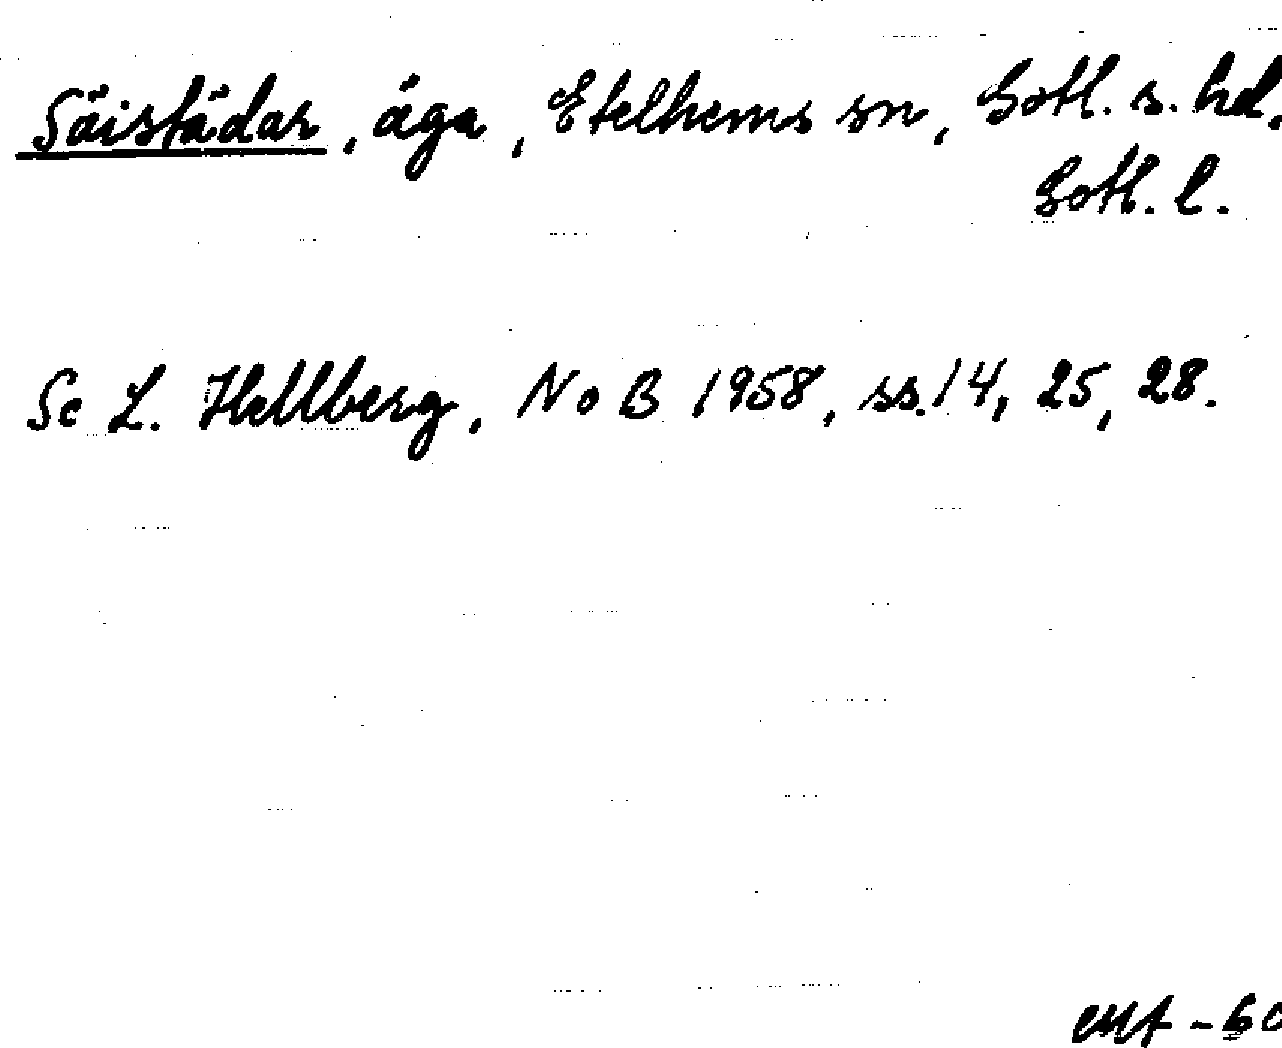 Säistädar, åga, Etelhems sn, Gotl. s. hd,
Gotl. l.
Se L. Hellberg, NoB 1958, ss. 14, 25, 28.